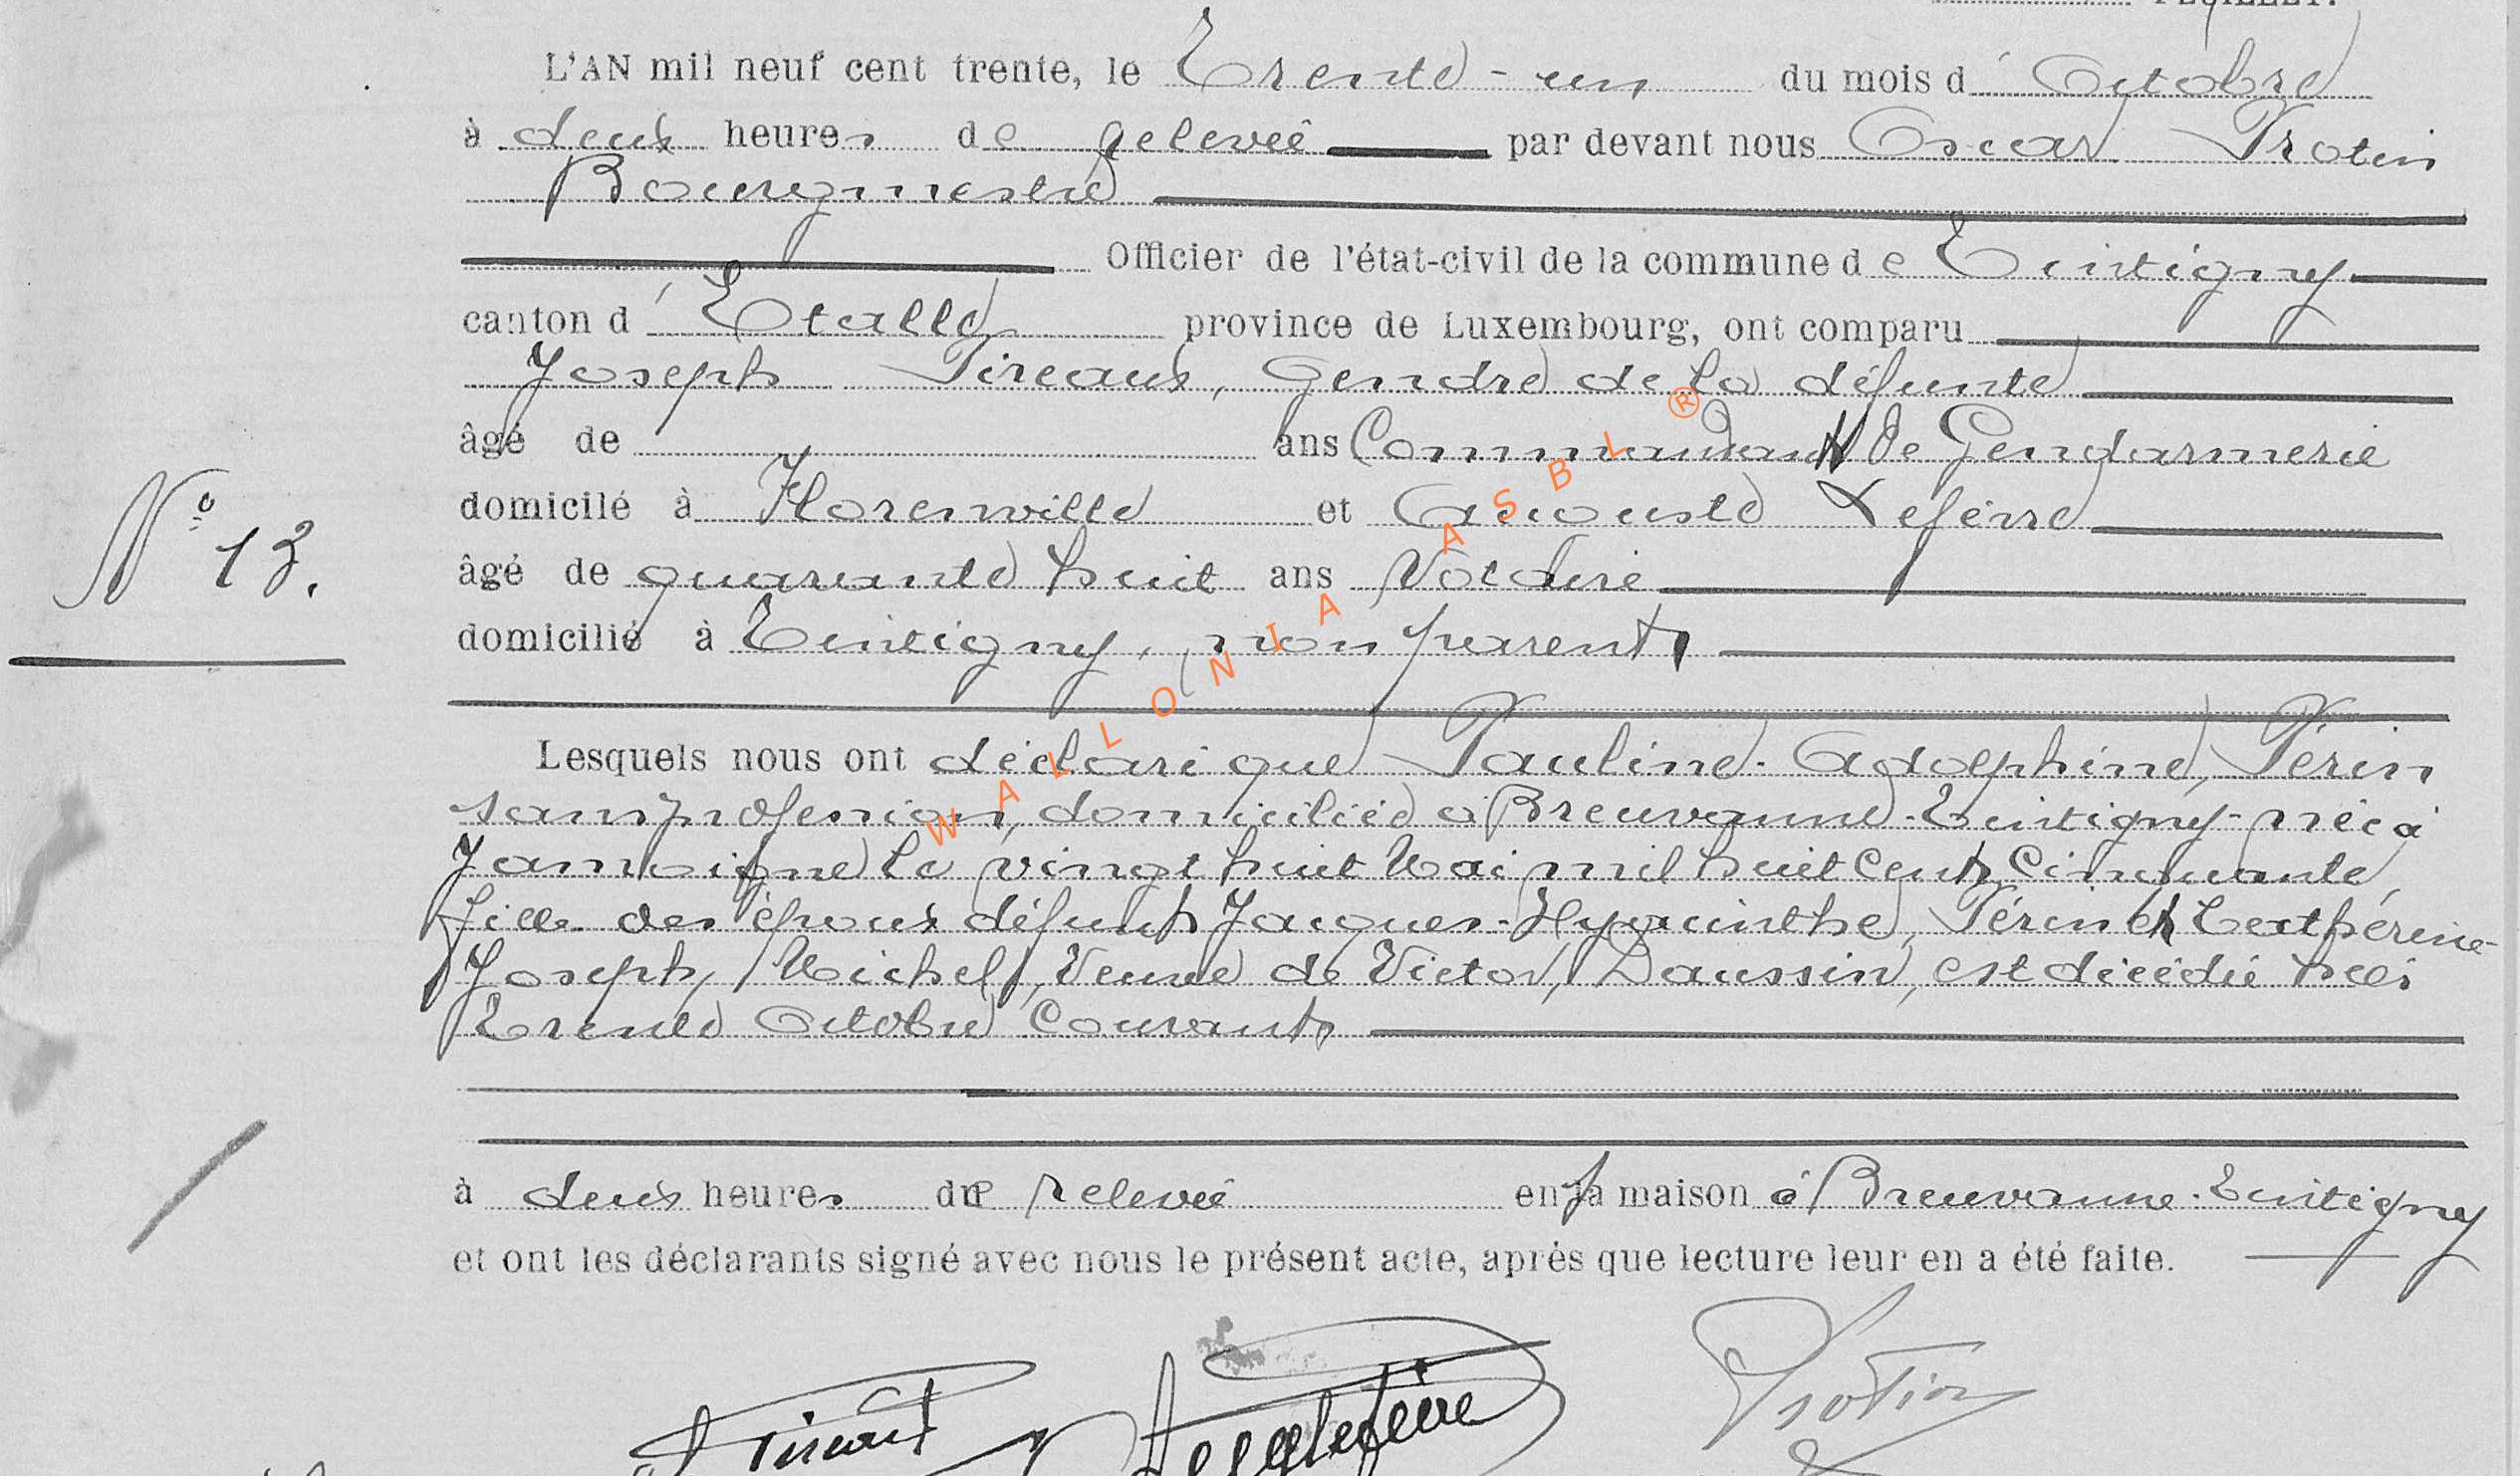 FEUILLET.
L'AN mil neuf cent trente, le Trente-un du mois d'Octobre
à deux heures de relevée par devant nous Oscar Protin
Bourgmestre
Officier de l'état-civil de la commune de Tintigny
canton d'Etalle province de Luxembourg, ont comparu
Joseph Pireaux, Gendre de la défunte
âgé de ans Commandant de Gendarmerie
domicilé à Florenville et Lefèvre
âgé de quarante huit ans
domicilié à Tintigny, non parents
N° 13.
Lesquels nous ont déclaré que Pauline-Adolphine, Périn
sans profession, domiciliée à Breuvanne-Tintigny-née à
Jamoigne le vingt huit Mai mil huit cent cinquante,
fille des époux défunts Jacques-Hyacinthe, Périn et Cathérine-
Joseph, Michel, Veuve de Victor, Daussin, est décédée
Trente Octobre courant
à deux heures de relevée en sa maison à Breuvanne-Tintigny
et ont les déclarants signé avec nous le présent acte, après que lecture leur en a été faite.
Lefèvre Protin
WALLONIA ASBL ®